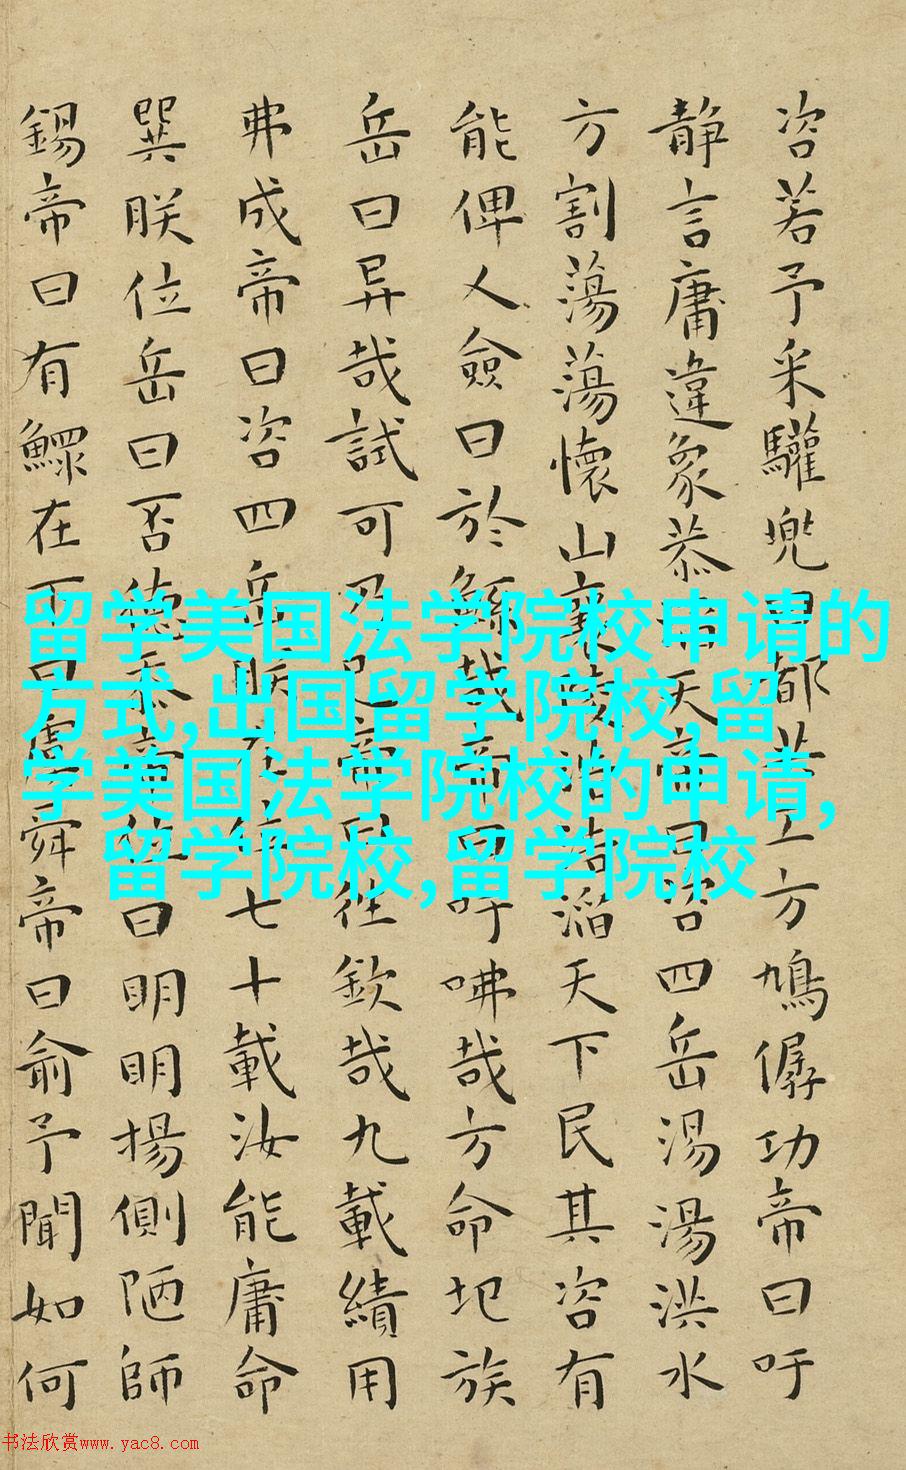 咨若予采驩兜曰都共工方鳩僝功帝曰吁
靜言庸違象恭滔天帝曰咨四岳湯湯洪水
方割蕩蕩懷山襄陵浩浩滔天下民其咨有
能俾乂僉曰於鯀哉帝曰吁咈哉方命圮族
岳曰异哉試可乃已帝曰往欽哉九載績用
弗成帝曰咨四岳朕在位七十載汝能庸命
巽朕位岳曰否德忝帝位曰明明揚側陋師
錫帝曰有鰥在下曰虞舜帝曰俞予聞如何
留学美国法学院校申请的
方式,出国留学院校,留
学美国法学院校的申请,
留学院校,留学院校
书法欣赏www.yac8.com